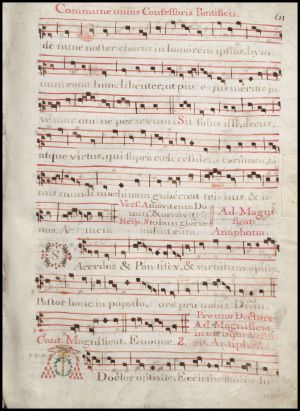 Commune unius Confessoris Pontificis.
61
de nunc noster chorus in honorem ipsius, hym
num canat hunc libenter, ut piis ejus meritis ju
vemur omne per aevum. Sit salus illi, decus,
atque virtus, qui supra coeli residens cacumen, to
tius mundi machinam gubernat trinus & u
nus. Amen.
Vers. Amavit eum Do
minus & ornavit eum
Resp. Stolam gloriae
induit eum.
Ad Magnif
icat
Antiphona.
Sacerdos & Pontifex, & virtutum opifex,
Pastor bone in populo, ora pro nobis Dominum.
Pro uno Doctore
Ad Magnificat,
in utrisque Vesperis
Cant. Magnificat. Euouae. 2.
Antiphona.
Doctor optime, Ecclesiae sanctae lu